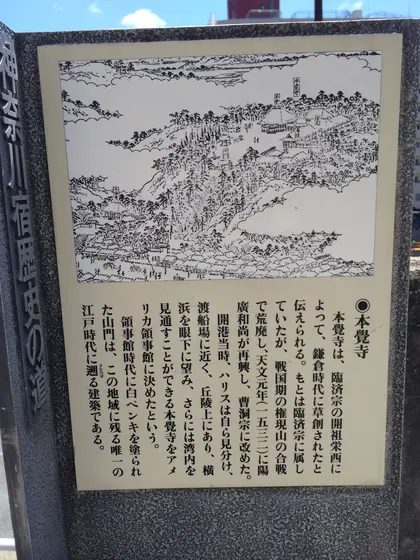 神奈川宿歴史の道
●本覺寺
本覺寺は、臨済宗の開祖栄西に
よって、鎌倉時代に草創されたと
伝えられる。もとは臨済宗に属し
ていたが、戦国期の権現山の合戦
で荒廃し、天文元年(一五三二)に陽
廣和尚が再興し、曹洞宗に改めた。
開港当時、ハリスは自ら見分け、
渡船場に近く、丘陵上にあり、横
浜を眼下に望み、さらには湾内を
見通すことができる本覺寺をアメ
リカ領事館に決めたという。
領事館時代に白ペンキを塗られ
た山門は、この地域に残る唯一の
江戸時代に遡る建築である。
さかのぼ